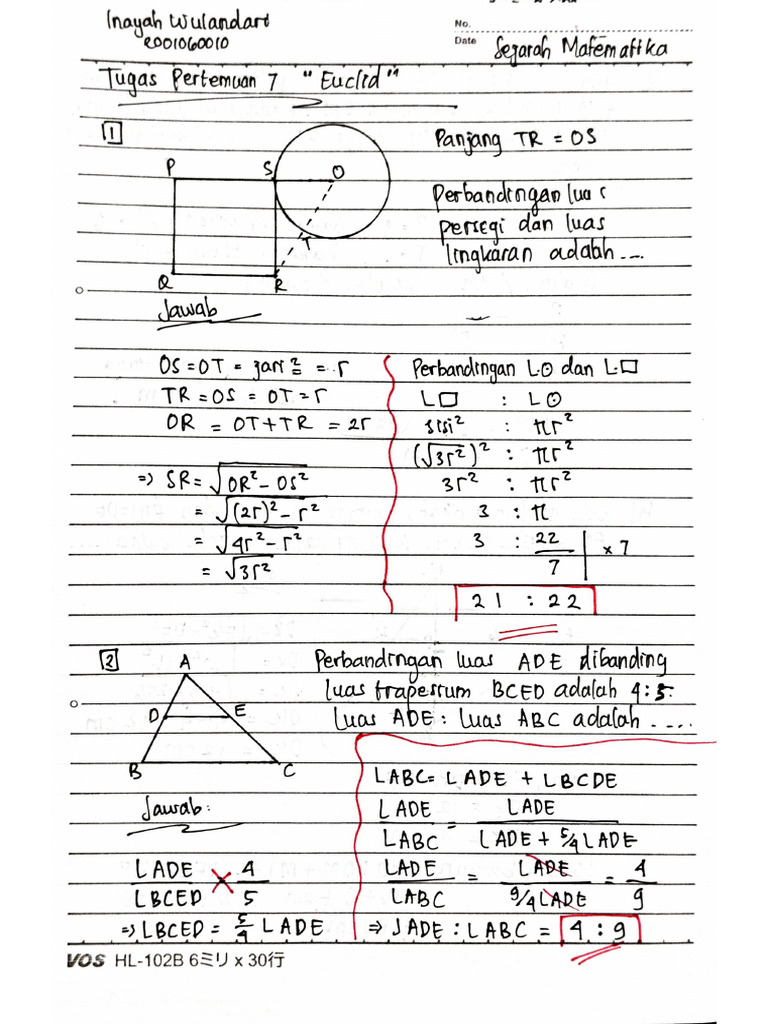 Inayah Wulandari
2001060010
No.
Date
Sejarah Matematika
Tugas Pertemuan 7 "Euclid"
1
Panjang TR = OS
P S O
T
Q R
Perbandingan luas
persegi dan luas
lingkaran adalah ....
Jawab
OS = OT = jari² = r
TR = OS = OT = r
OR = OT + TR = 2r
⇒ SR = √OR² - OS²
= √(2r)² - r²
= √4r² - r²
= √3r²
Perbandingan L⊙ dan L□
L□ : L⊙
sisi² : πr²
(√3r²)² : πr²
3r² : πr²
3 : π
3 : 22/7 | × 7
21 : 22
2
A
D E
B C
Perbandingan luas ADE dibanding
luas trapesium BCED adalah 4:5.
Luas ADE : Luas ABC adalah ....
Jawab:
LADE/LBCED × 4/5
⇒ LBCED = 5/4 LADE
LABC = LADE + LBCDE
LADE/LABC = LADE/LADE + 5/4 LADE
LADE/LABC = LADE/9/4 LADE = 4/9
⇒ JADE : LABC = 4 : 9
VOS HL-102B 6ミリ x 30行